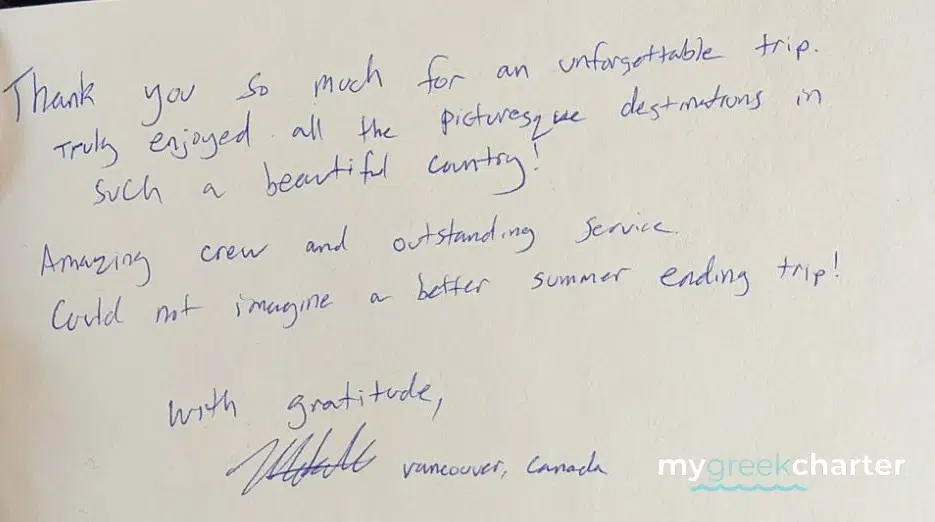 Thank you so much for an unforgettable trip.
Truly enjoyed all the picturesque destinations in
such a beautiful country!
Amazing crew and outstanding service
Could not imagine a better summer ending trip!
with gratitude,
vancouver, Canada
mygreekcharter